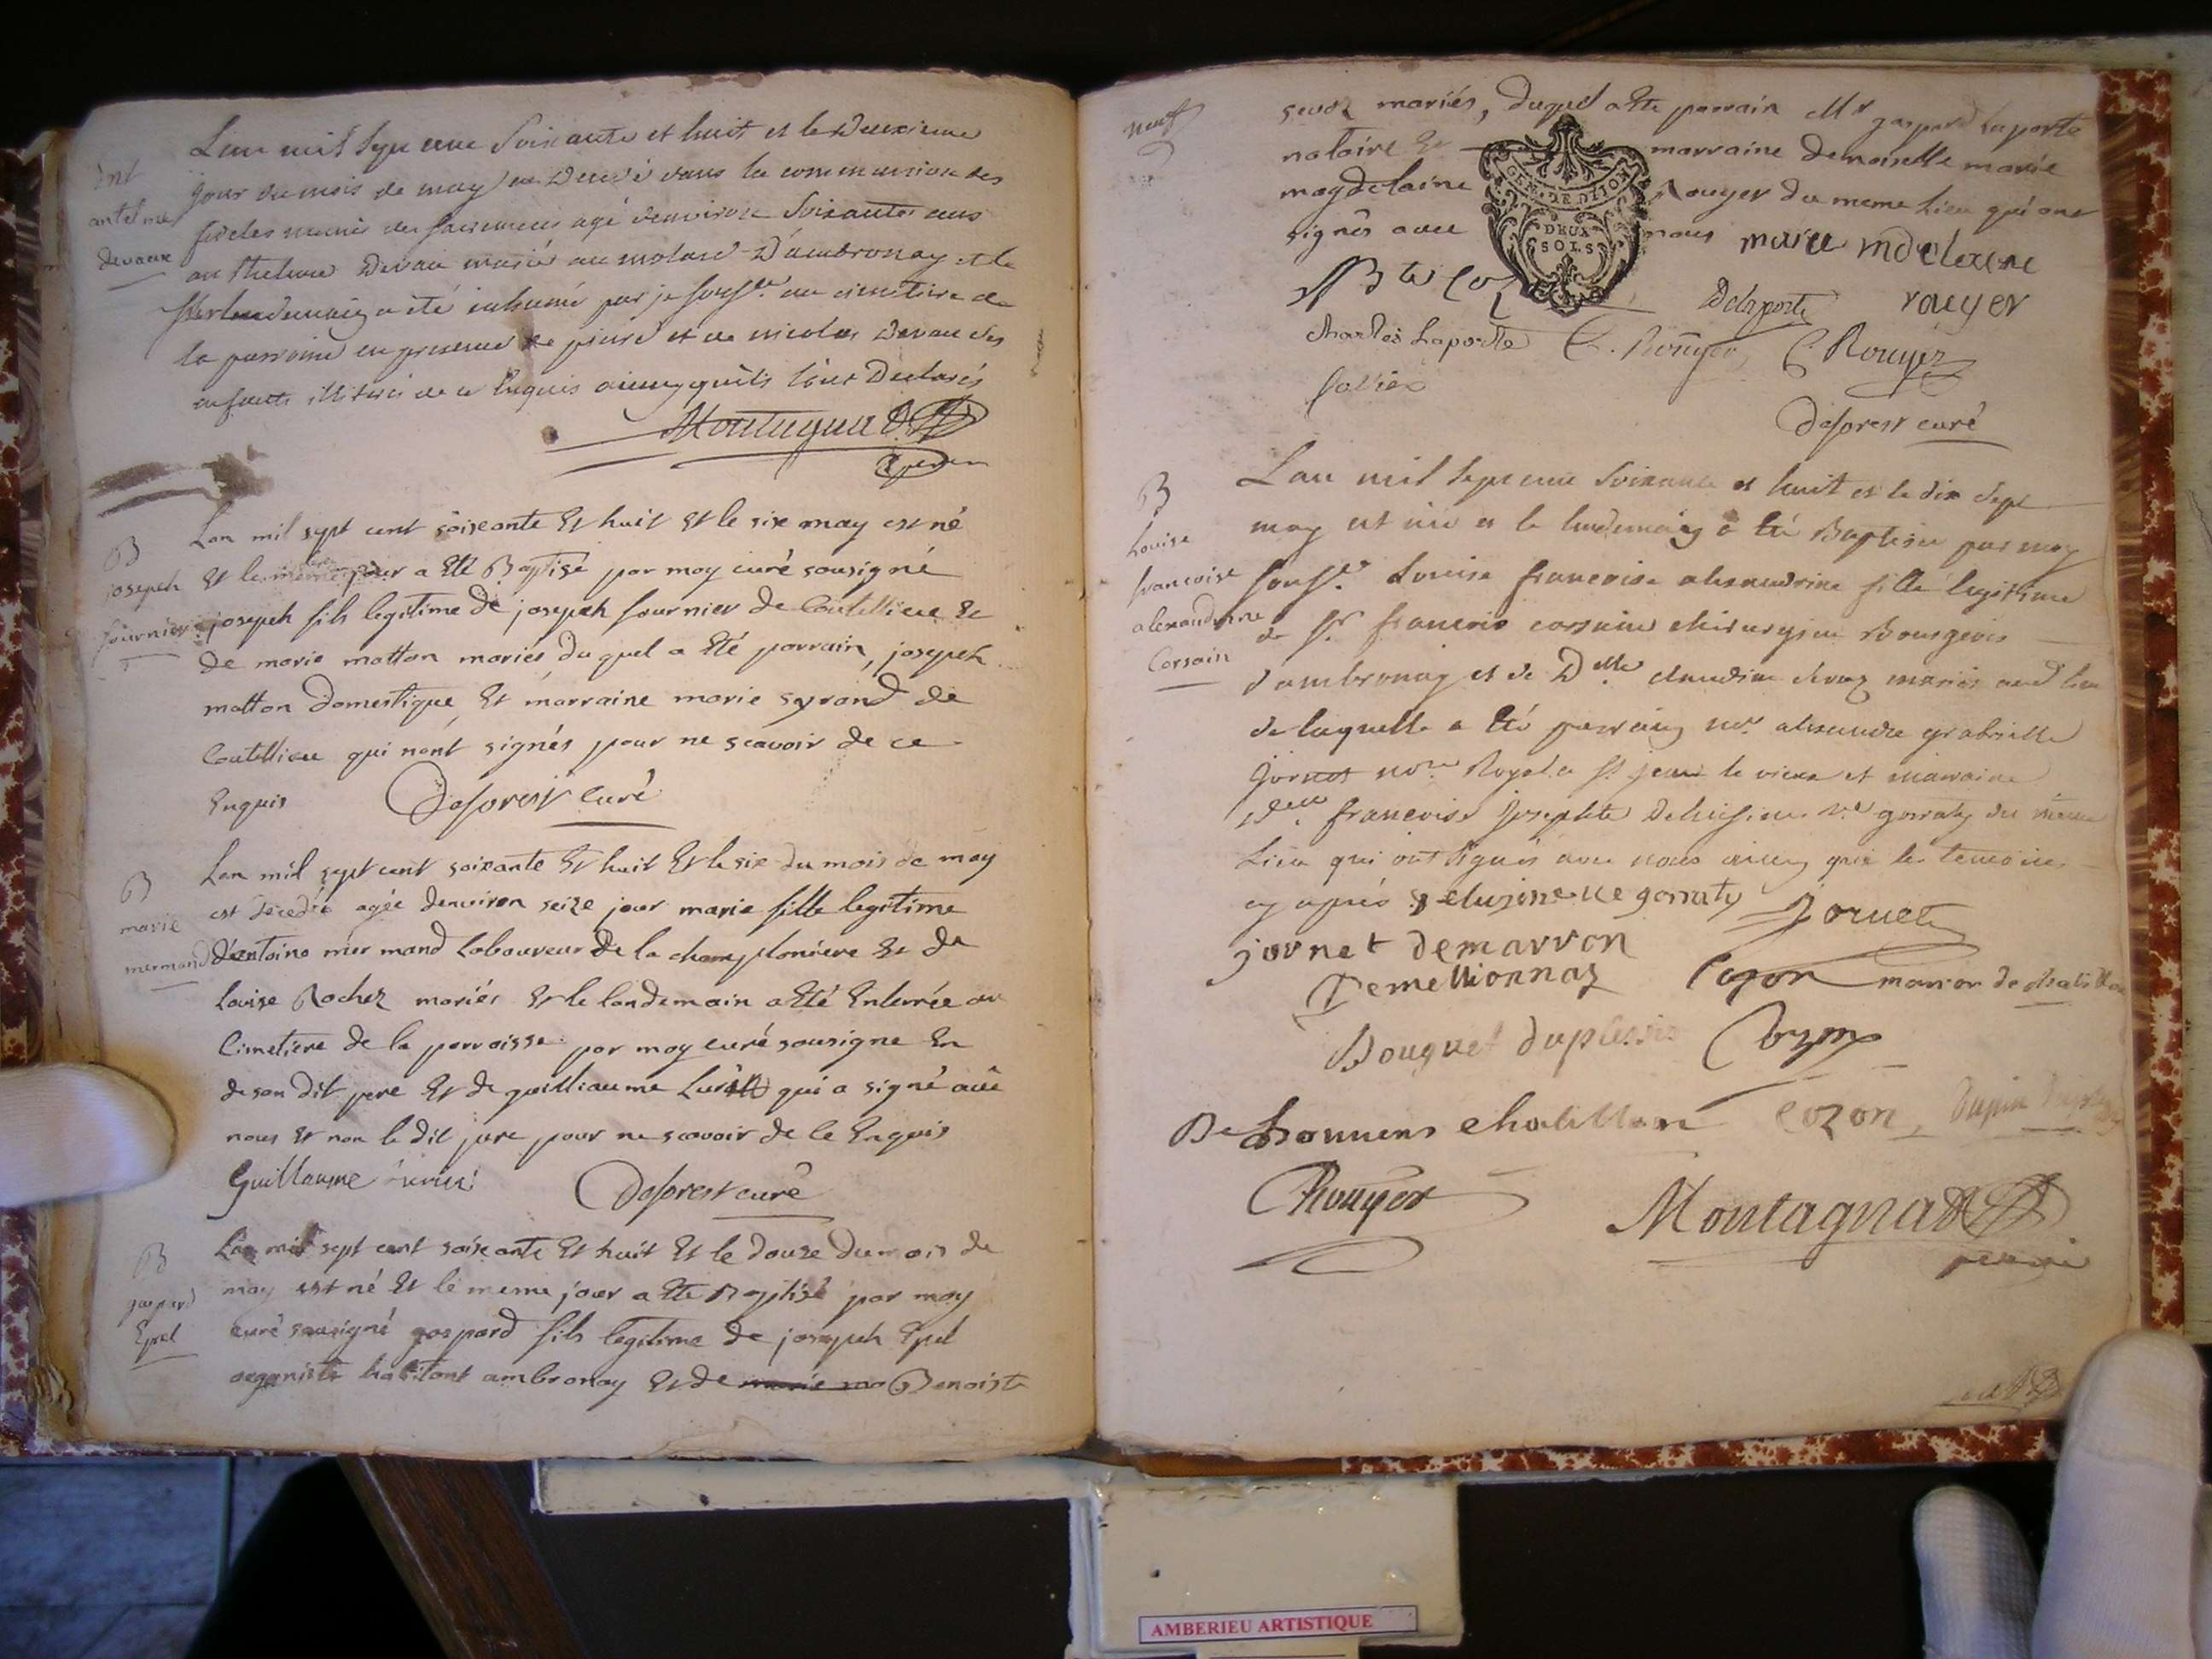 Lan mil sept cent soixante et huit et le deuxieme
jour du mois de may est decedé dans la communion des
fideles munis des sacremens agé denviron soixante ans
anthelme devau marié au molard d'ambronay et le
surlendemain a été inhumé par je souss.é au cimetiere de
la parroisse en presence de pierre et de nicolas devau ses
enfants illitérés de ce enquis ainsy quils lont declarés
Montagnad
anthelme
devaux
B
joseph
fournier
Lan mil sept cent soixante Et huit Et le six may est né
Et le meme jour a Eté Baptisé par moy curé sousigné
joseph fils legitime de joseph fournier de Coutellieu Et
de marie matton mariés duquel a Eté parrain, joseph
matton domestique, Et marraine marie syrand de
Coutellieu qui nont signés pour ne scavoir de ce
Enquis Deforest curé
B
marie
mermand
Lan mil sept cent soixante Et huit Et le six du mois de may
est decedée agée denviron seize jour marie fille legitime
d'antoine mermand laboureur de la championiere Et de
Louise Rochez mariés Et le landemain a Eté Enterrée au
Cimetiere de la parroisse par moy curé sousigne En
de son dit pere Et de guilliaume qui a signé avec
nous Et non le dit pere pour ne scavoir de ce Enquis
Guillaume Deforest curé
B
gaspard
Epel
Lan mil sept cent soixante Et huit Et le douze du mois de
may est né Et le meme jour a Ete Baptisé par moy
curé sousigné gaspard fils legitime de joseph Epel
organiste habitant ambronay Et de marie Benoiste
neuf
mariés, duquel a Ete parrain Mr gaspard Laporte
notaire Et marraine demoiselle marie
magdelaine Rouyer du meme lieu qui ont
signés avec nous marie mdelexne
GEN. DE DIJON
DEUX
SOLS
Delaporte rouyer
charles Laporte C. Rouyer C. Rouyer
Deforest curé
B
Louise
francoise
alexandrine
Corsain
Lan mil sept cent soixante et huit et le dix sept
may est née et le lendemain a été Baptisée par moy
souss.é Louise francoise alexandrine fille legitime
de Sr. francois corsain chirurgien Bourgeois
d'ambronay et de Dlle claudine mariés aud lieu
de laquelle a été parrain alexandre grabrielle
Jornet nore Royal a St jean le vieux et marraine
francoise Josephte ve gorraty du meme
Lieu qui ont signés avec nous ainsy que les temoins
cy aprés gorraty Jornet
jornet demarron
Demellionnaz Cozon marion de chatillon
Bouquet duplessis
chatillon cozon, Dupin
Rouyer Montagnad